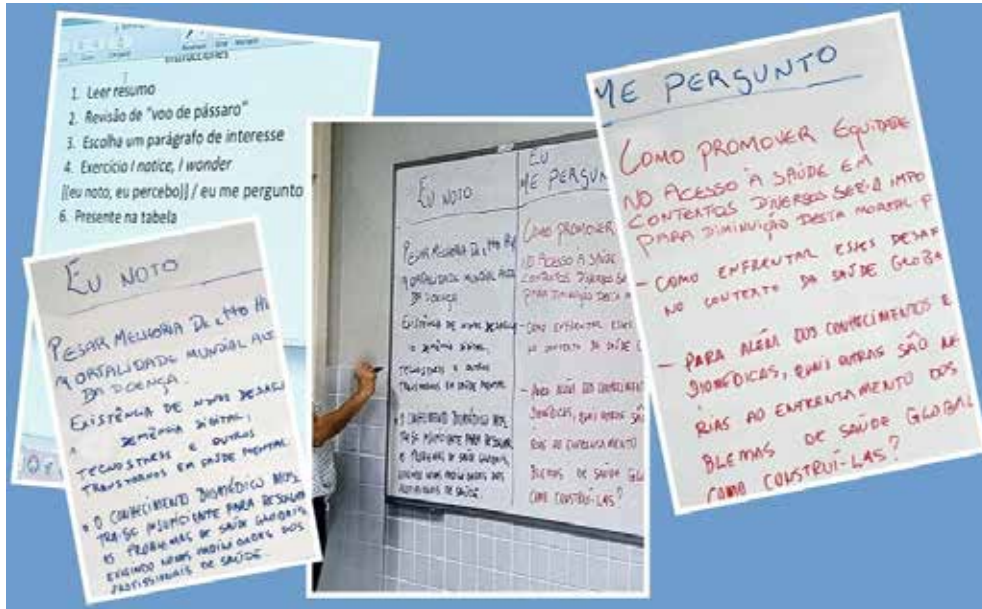 Instrucciones
1. Leer resumo
2. Revisão de "voo de pássaro"
3. Escolha um parágrafo de interesse
4. Exercício I notice, I wonder
[(eu noto, eu percebo)] / eu me pergunto
6. Presente na tabela
EU NOTO
PESAR MELHORIA DE
MORTALIDADE MUNDIAL
DA DOENÇA.
EXISTÊNCIA DE NOVOS
DEMÊNCIA DIGITAL,
TECNOSTRESS E OUTROS
TRANSTORNOS EM SAÚDE MENTAL
• O CONHECIMENTO BIOMÉDICO MOS
TRA-SE INSUFICIENTE PARA RESOLVER
OS PROBLEMAS DE SAÚDE GLOBAIS,
EXIGINDO NOVAS HABILIDADES DOS
PROFISSIONAIS DE SAÚDE.
EU NOTO
PESAR MELHORIA DE
MORTALIDADE MUNDIAL
DA DOENÇA
EXISTÊNCIA DE NOVOS
DEMÊNCIA DIGITAL,
TECNOSTRESS E OUTROS
TRANSTORNOS EM SAÚDE MENTAL
• O CONHECIMENTO BIOMÉDICO MOS
TRA-SE INSUFICIENTE PARA RESOLVER
OS PROBLEMAS DE SAÚDE GLOBAIS,
EXIGINDO NOVAS HABILIDADES DOS
PROFISSIONAIS DE SAÚDE.
EU
ME PERGUN
COMO PROMOVER
NO ACESSO À SAÚDE
CONTEXTOS DIVERSOS SE
PARA DIMINUIÇÃO DESTA
- COMO ENFRENTAR ESSES
NO CONTEXTO DA SAÚDE
- PARA ALÉM DOS CONHECIMEN
BIOMÉDICAS, QUAIS OUTRAS SÃO
RIAS AO ENFRENTAMENTO
BLEMAS DE SAÚDE GL
COMO CONSTRUÍ-LAS?
ME PERGUNTO
COMO PROMOVER EQUIDADE
NO ACESSO À SAÚDE EM
CONTEXTOS DIVERSOS SERIA IMPO
PARA DIMINUIÇÃO DESTA MORTAL
- COMO ENFRENTAR ESSES DESAF
NO CONTEXTO DA SAÚDE GLOBA
- PARA ALÉM DOS CONHECIMENTOS E
BIOMÉDICAS, QUAIS OUTRAS SÃO NE
RIAS AO ENFRENTAMENTO DOS
BLEMAS DE SAÚDE GLOBAL
COMO CONSTRUÍ-LAS?